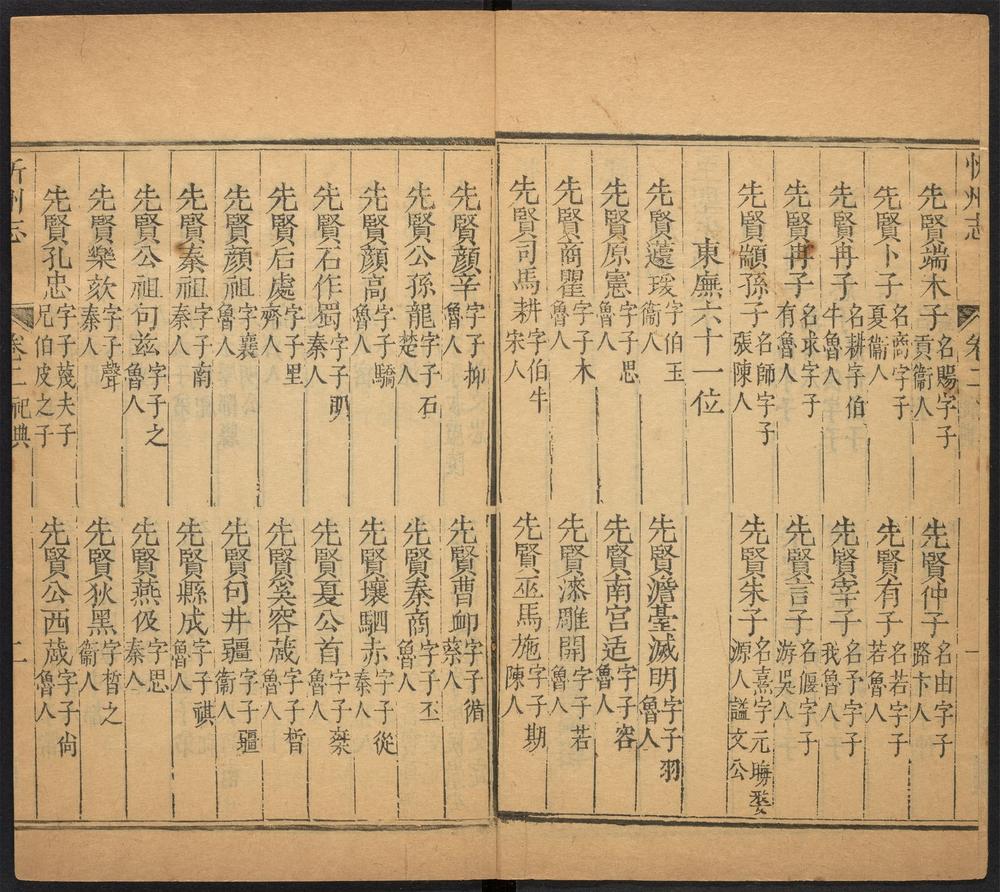 忻州志 卷二 一
先賢端木子名賜字子貢衞人
先賢仲子名由字子路卞人
先賢卜子名商字子夏衞人
先賢有子名若字子若魯人
先賢冉子名耕字伯牛魯人
先賢宰子名予字子我魯人
先賢冉子名求字子有魯人
先賢言子名偃字子游吳人
先賢顓孫子名師字子張陳人
先賢朱子名熹字元晦婺源人諡文公
東廡六十一位
先賢蘧瑗字伯玉衞人
先賢澹臺滅明字子羽魯人
先賢原憲字子思魯人
先賢南宮适字子容魯人
先賢商瞿字子木魯人
先賢漆雕開字子若魯人
先賢司馬耕字伯牛宋人
先賢巫馬施字子期陳人
先賢顏辛字子抑魯人
先賢曹卹字子循蔡人
先賢公孫龍字子石楚人
先賢秦商字子丕魯人
先賢顏高字子驕魯人
先賢壤駟赤字子從秦人
先賢石作蜀字子明秦人
先賢夏公首字子椉魯人
先賢后處字子里齊人
先賢奚容蒧字子晳魯人
先賢顏祖字襄魯人
先賢句井疆字子疆衞人
先賢秦祖字子南秦人
先賢縣成字子祺魯人
先賢公祖句茲字子之魯人
先賢燕伋字思秦人
先賢樂欬字子聲秦人
先賢狄黑字晳之衞人
先賢孔忠字子蔑夫子兄伯皮之子
先賢公西蒧字子尚魯人
忻州志 卷二 祀典 二